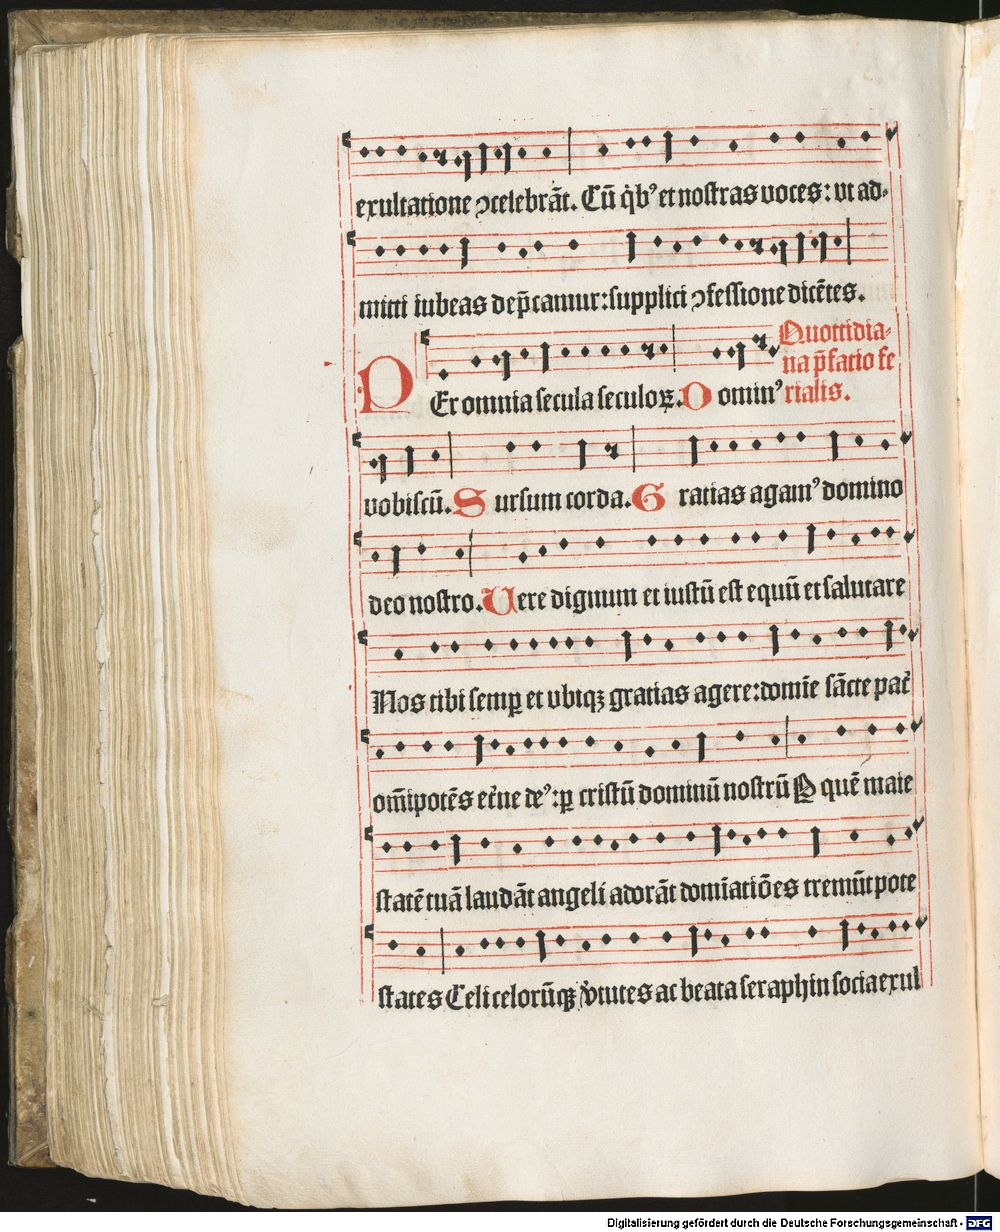 exultatione ꝯcelebrāt. Cū q̇bꝰ et nostras uoces: ut ad-
mitti iubeas dep̄camur: supplici ꝯfessione dicētes.
Quottidia-
na p̄fatio fe
rialis.
PEr omnia secula seculoꝝ. Dominꝰ
uobiscū. Sursum corda. Gratias agamꝰ domino
deo nostro. Uere dignum et iustū est equū et salutare
Nos tibi semꝑ et ubiqꝫ gratias agere: domīe sācte pat̄
om̄ipotēs et̄ne deꝰ: ꝑ cristū dominū nostrū P quē maie
statē tuā laudāt angeli adorāt domīatiōes tremūt pote
states Celi celorūqꝫ v̄tutes ac beata seraphin socia exul
Digitalisierung gefördert durch die Deutsche Forschungsgemeinschaft - DFG